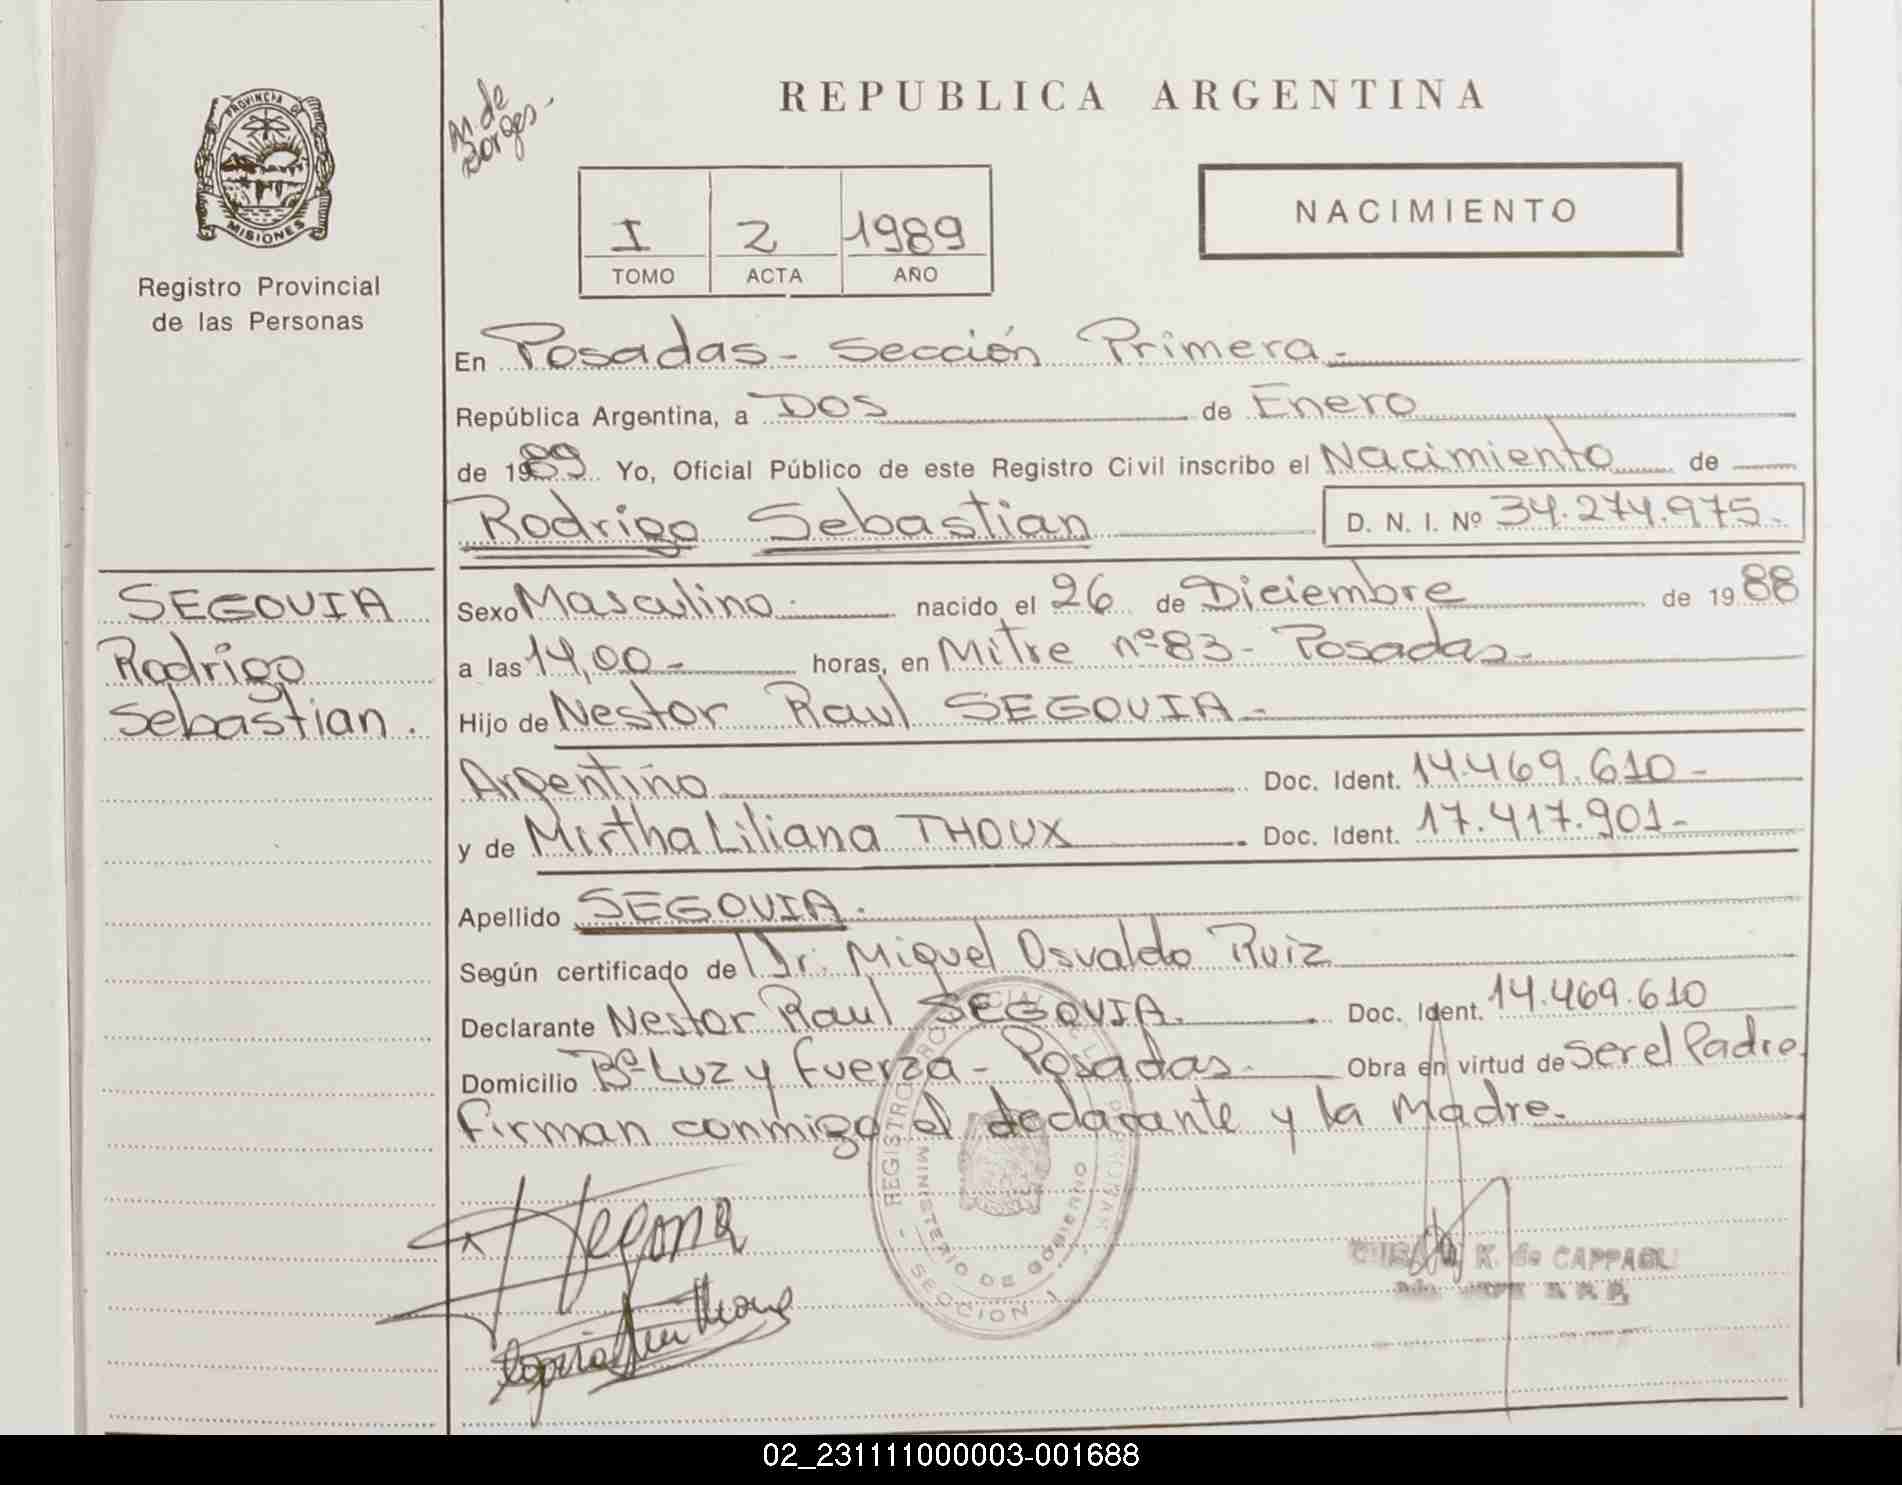 PROVINCIA DE
MISIONES
Registro Provincial
de las Personas
M. de
Borges-
REPUBLICA ARGENTINA
I 2 1989
TOMO ACTA AÑO
NACIMIENTO
En Posadas- Sección Primera.-
República Argentina, a DOS de Enero
de 1989. Yo, Oficial Público de este Registro Civil inscribo el Nacimiento de
Rodrigo Sebastian D. N. I. Nº 34.274.975.-
SEGOVIA
Rodrigo
Sebastian.
Sexo Masculino.- nacido el 26 de Diciembre de 1988
a las 14,00- horas, en Mitre nº 83- Posadas.-
Hijo de Nestor Raul SEGOVIA.-
Argentino Doc. Ident. 14.469.610-
y de Mirtha Liliana THOUX Doc. Ident. 17.417.901.-
Apellido SEGOVIA.
Según certificado de Dr. Miguel Osvaldo Ruiz
Declarante Nestor Raul SEGOVIA. Doc. Ident. 14.469.610
Domicilio Bº Luz y Fuerza- Posadas.- Obra en virtud de ser el Padre.
Firman conmigo el declarante y la Madre.-
REGISTRO
MINISTERIO DE GOBIERNO
SECCION 1
K. de CAPPAGLI
02_231111000003-001688